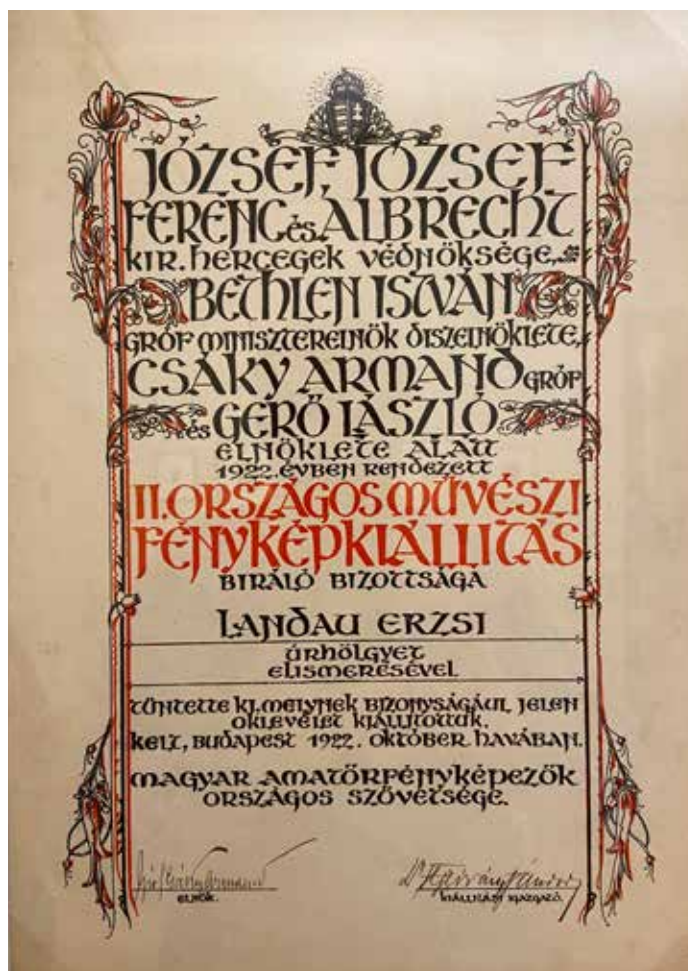 JÓZSEF, JÓZSEF
FERENC és ALBRECHT
KIR. HERCEGEK VÉDNÖKSÉGE,
BETHLEN ISTVÁN
GRÓF MINISZTERELNÖK DISZELNÖKLETE,
CSÁKY ARMAND GRÓF
és GERŐ LÁSZLÓ
ELNÖKLETE ALATT
1922. ÉVBEN RENDEZETT
II. ORSZÁGOS MŰVÉSZI
FÉNYKÉPKIÁLLITÁS
BIRÁLÓ BIZOTTSÁGA
LANDAU ERZSI
ÚRHÖLGYET
ELISMERÉSÉVEL
TÜNTETTE KI, MELYNEK BIZONYSÁGÁUL JELEN
OKLEVELET KIÁLLITOTTUK.
KELT, BUDAPEST 1922. OKTÓBER HAVÁBAN.
MAGYAR AMATŐRFÉNYKÉPEZŐK
ORSZÁGOS SZÖVETSÉGE.
Armand
ELNÖK.
KIÁLLITÁSI IGAZGATÓ.